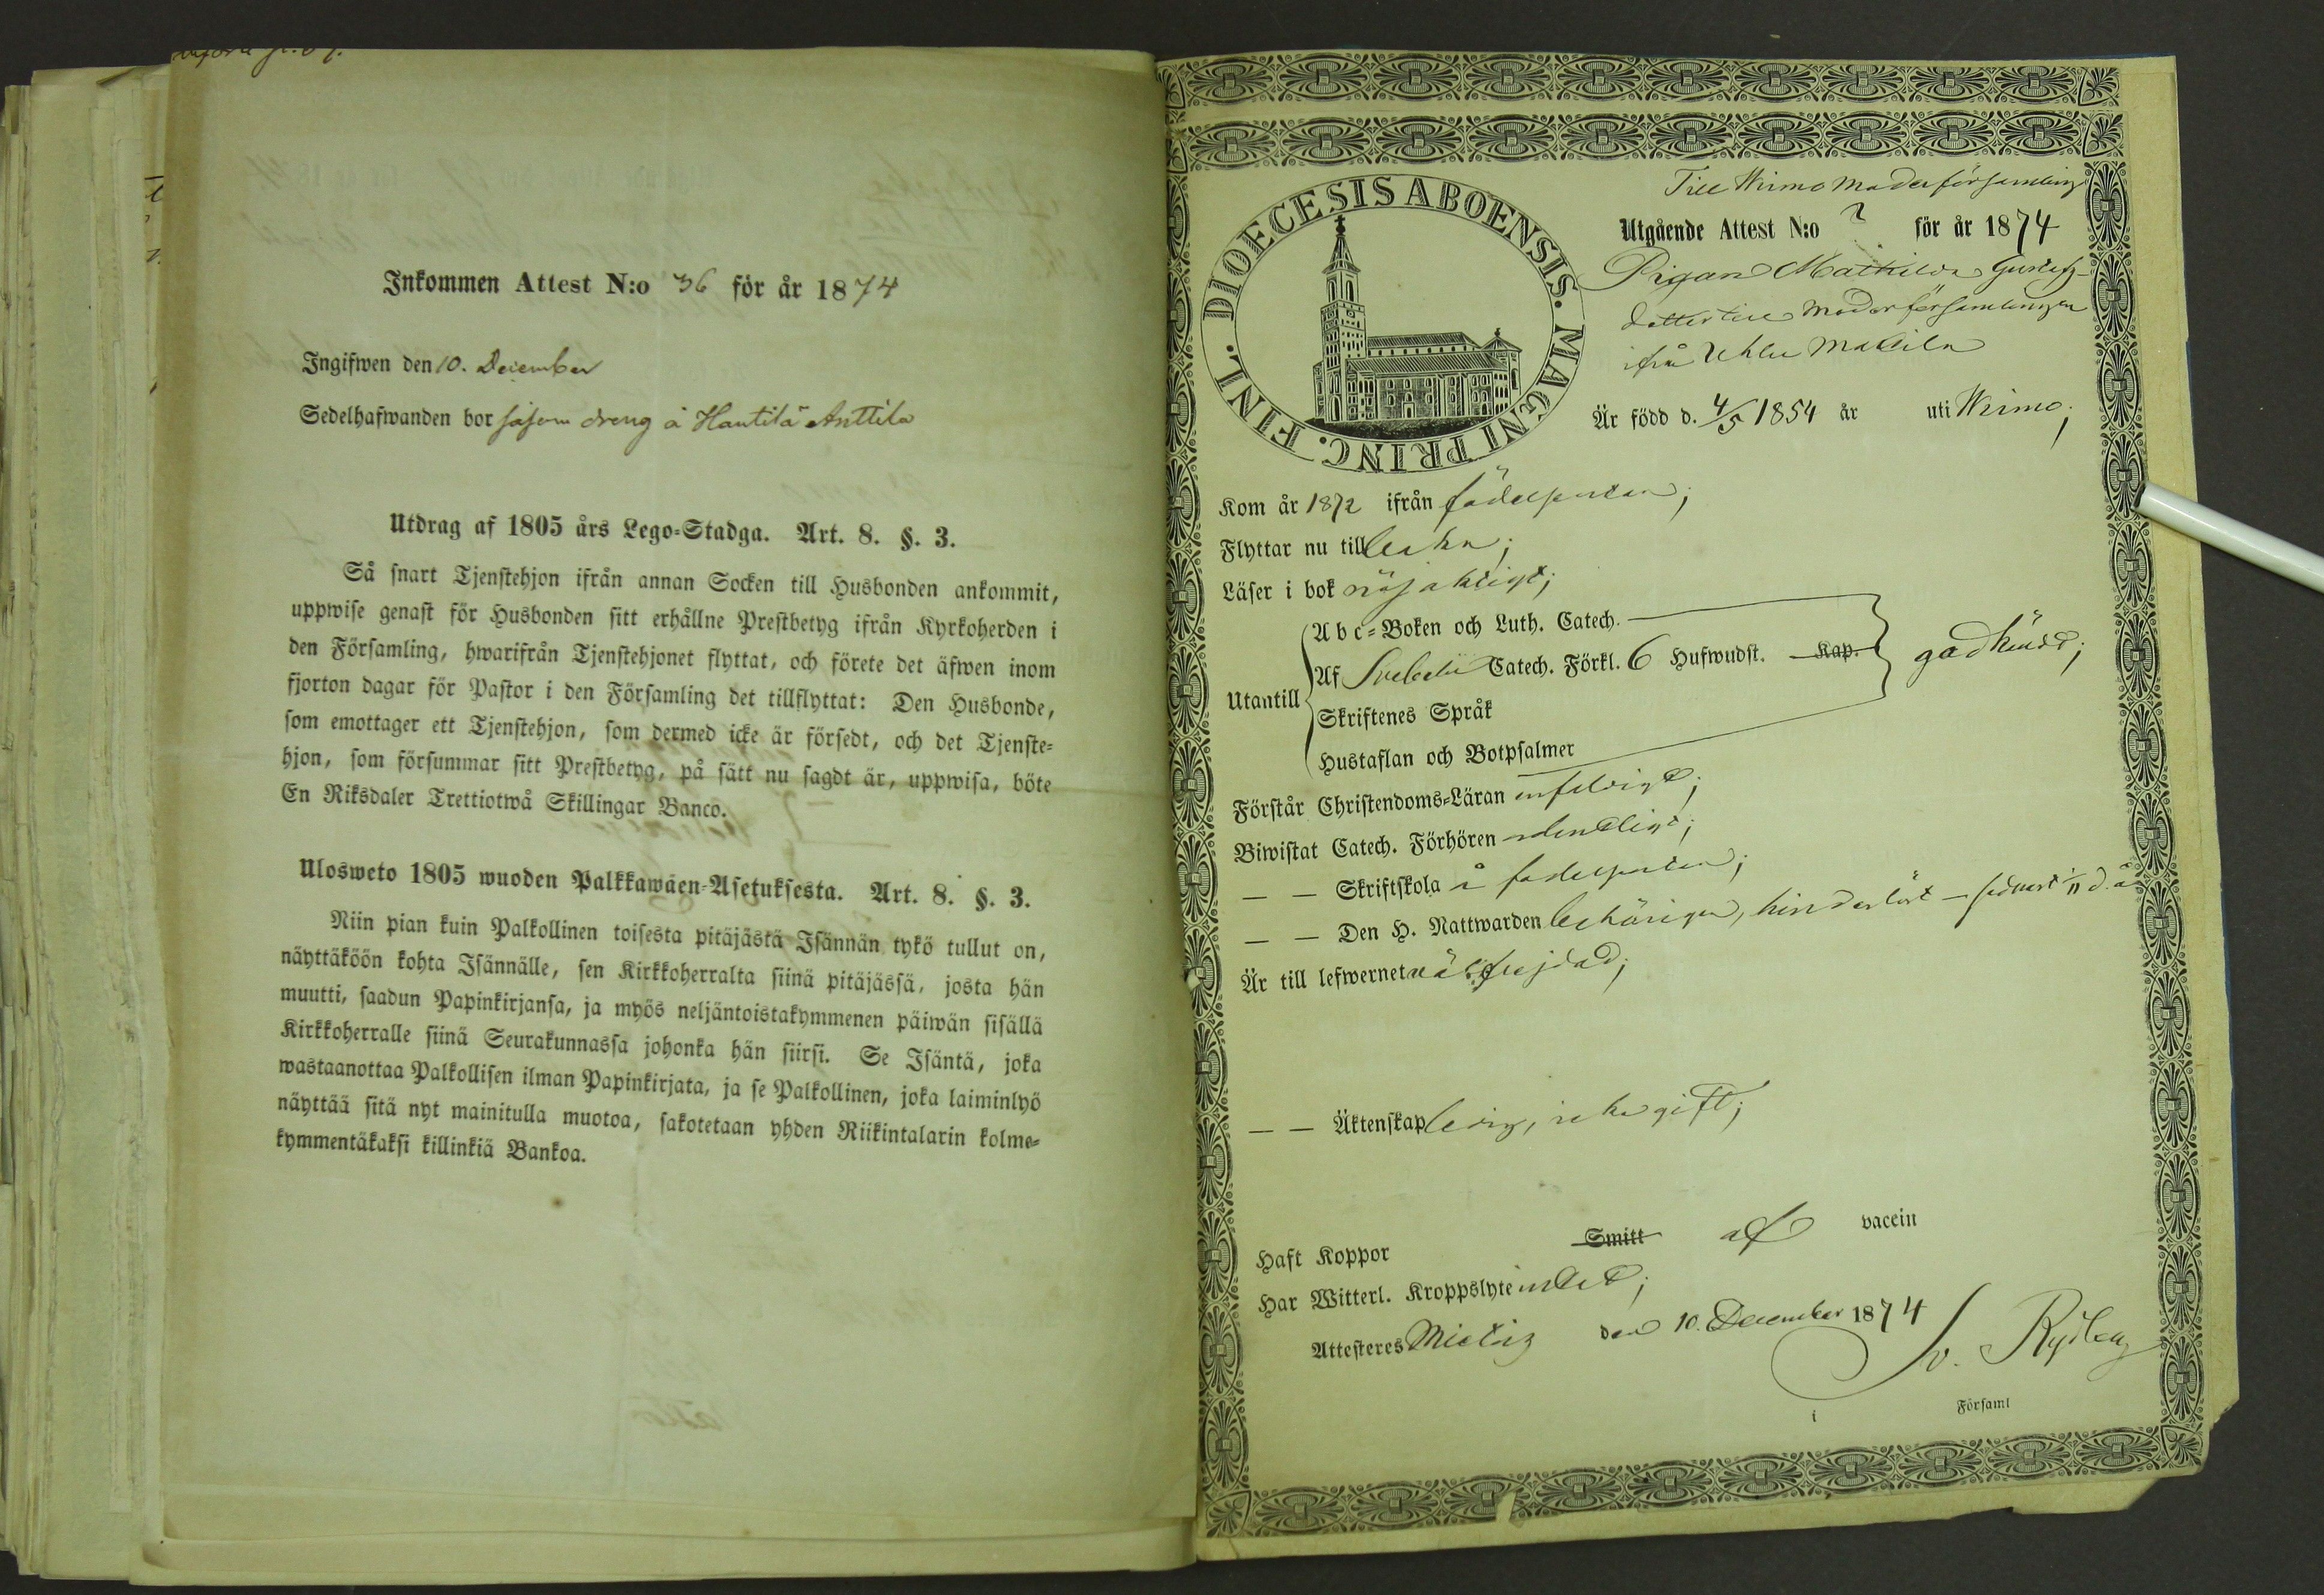 Inkommen Attest N:o 36 för år 1874
Ingifwen den 10. December
Sedelhafwanden bor såsom dreng å Hautila Anttila
Utdrag af 1805 års Lego-Stadga. Art. 8. §. 3.
Så snart Tjenstehjon ifrån annan Socken till Husbonden ankommit,
uppwise genast för Husbonden sitt erhållne Prestbetyg ifrån Kyrkoherden i
den Församling, hwarifrån Tjenstehjonet flyttat, och förete det äfwen inom
fjorton dagar för Pastor i den Församling det tillflyttat: Den Husbonde,
som emottager ett Tjenstehjon, som dermed icke är försedt, och det Tjenste-
hjon, som försummar sitt Prestbetyg, på sätt nu sagdt är, uppwisa, böte
En Riksdaler Trettiotwå Skillingar Banco.
Ulosweto 1805 wuoden Palkkawäen-Asetuksesta. Art. 8. §. 3.
Niin pian kuin Palkollinen toisesta pitäjästä Isännän tykö tullut on,
näyttäköön kohta Isännälle, sen Kirkkoherralta siinä pitäjässä, josta hän
muutti, saadun Papinkirjansa, ja myös neljäntoistakymmenen päiwän sisällä
Kirkkoherralle siinä Seurakunnassa johonka hän siirsi. Se Isäntä, joka
wastaanottaa Palkollisen ilman Papinkirjata, ja se Palkollinen, joka laiminlyö
näyttää sitä nyt mainitulla muotoa, sakotetaan yhden Riikintalarin kolme-
kymmentäkaksi killinkiä Bankoa.
DIOECESIS ABOENSIS. MAGNI PRINC. FINL.
Till Wirmo Moderförsamling
Utgående Attest N:o för år 1874
Pigan Mathilda Gustafs-
dotter till Moderförsamlingen
ifrån Mattila
Är född d. 4/5 1854 år uti Wirmo;
Kom år 1872 ifrån födelseorten;
Flyttar nu till
Läser i bok nöjaktigt;
Abc-Boken och Luth. Catech.
Utantill Af Svebelii Catech. Förkl. 6 Hufwudst. Kap. godkänd;
Skriftenes Språk
Hustaflan och Botpsalmer
Förstår Christendoms-Läran enfaldigt;
Biwistat Catech. Förhören ordentligt;
— — Skriftskola å födelseorten;
— — Den H. Nattwarden behörigen, hinderlöst — sednast 1/11 d. å
Är till lefwernet välfrejdad;
— — Äktenskap ledig, icke gift;
Haft Koppor Smitt af vaccin
Har Witterl. Kroppslyte intet;
Attesteres Mietois den 10. December 1874
i Församl